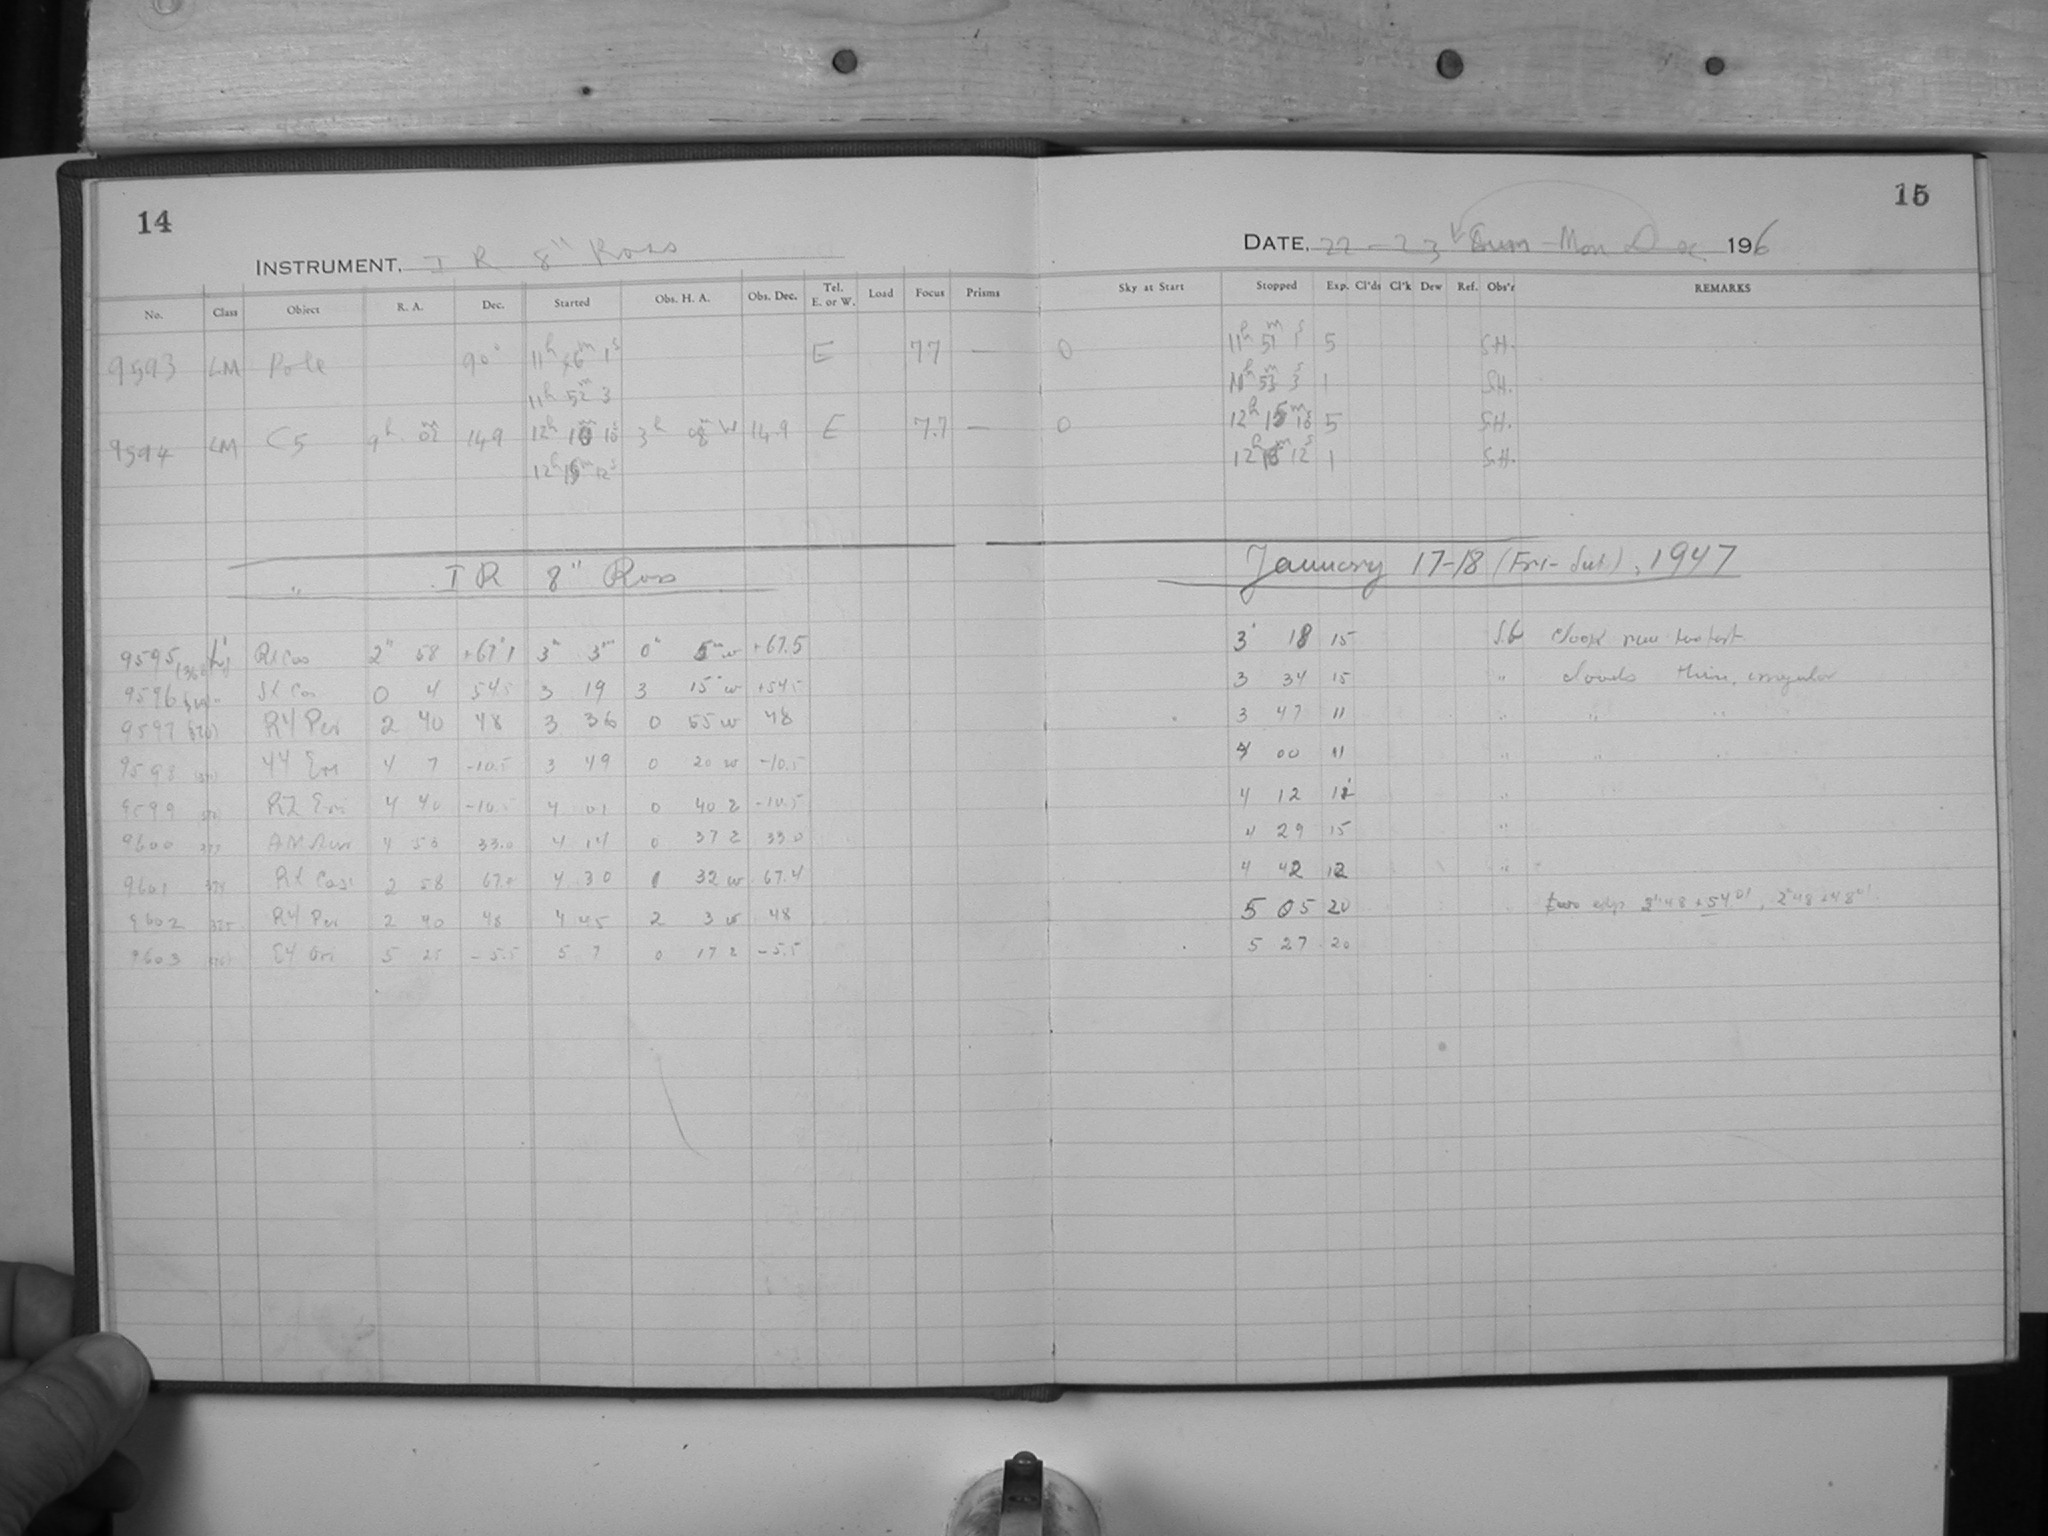 14
15
INSTRUMENT, I R 8" Ross
DATE, 22-23 Sun-Mon Dec 1946
No. Class Object R. A. Dec. Started Obs. H. A. Obs. Dec. Tel. E. or W. Load Focus Prisms Sky at Start Stopped Exp. Cl'ds Cl'k Dew Ref. Obs'r REMARKS
9593 LM Pole 90° 11h 46m 1s E 7.7 — 0 11h 51m 1s 5 S.H.
11h 52m 3 11h 53 3s 1 S.H.
9594 LM C5 9h 02m 14.9 12h 10m 18s 3h 08m W 14.9 E 7.7 — 0 12h 15m 18s 5 S.H.
12h 15m 12s 12h 16m 12s 1 S.H.
" I R 8" Ross January 17-18 (Fri-Sat), 1947
9595 RX Cas 2h 58 +67°1 3h 3m 0h 5m w +67.5 3 18 15 S.G clock run too fast
9596 " SX Cas 0 4 54.5 3 19 3 15 w +54.5 3 34 15 " clouds thin, irregular
9597 RY Per 2 40 48 3 36 0 55 w 48 3 47 11 " " "
9598 YY Eri 4 7 -10.5 3 49 0 20 w -10.5 4 00 11 " "
9599 RZ Eri 4 40 -10.5 4 01 0 40 E -10.5 4 12 11 "
9600 AM Aur 4 53 33.0 4 14 0 37 E 33.0 4 29 15 "
9601 RX Cas 2 58 4 30 1 32 w 67.4 4 42 12 "
9602 RY Per 2 40 48 4 45 2 3 w 48 5 05 20 two exp 2h48 +54°, 2h48 +48°
9603 EY Ori 5 25 -5.5 5 7 0 17 E -5.5 5 27 20